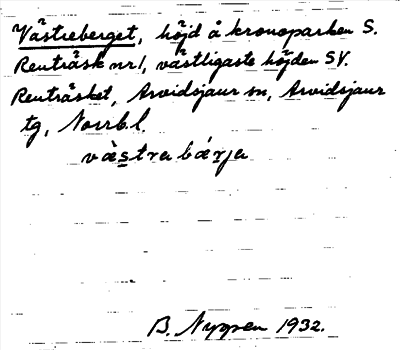 Västreberget, höjd å kronoparken S.
Renträsk nr 1, västligaste höjden SV.
Renträsket, Arvidsjaur sn, Arvidsjaur
tg, Norrb. l.
vàstra bárja
B. Nygren 1932.